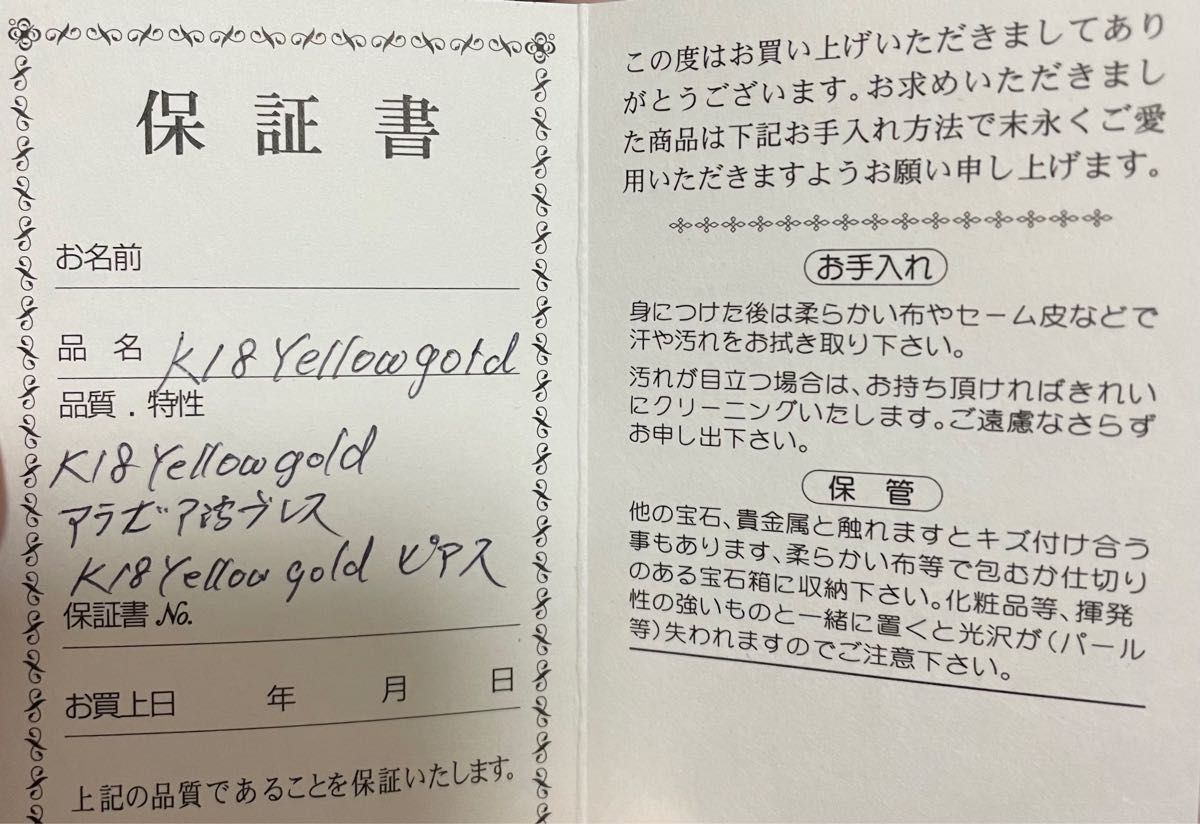 保証書
お名前
品名 K18 Yellow gold
品質.特性
K18 Yellow gold
アラビア湾ブレス
K18 Yellow gold ピアス
保証書 No.
お買上日 年 月 日
上記の品質であることを保証いたします。
この度はお買い上げいただきましてあり
がとうございます。お求めいただきまし
た商品は下記お手入れ方法で末永くご愛
用いただきますようお願い申し上げます。
お手入れ
身につけた後は柔らかい布やセーム皮などで
汗や汚れをお拭き取り下さい。
汚れが目立つ場合は、お持ち頂ければきれい
にクリーニングいたします。ご遠慮なさらず
お申し出下さい。
保管
他の宝石、貴金属と触れますとキズ付け合う
事もあります、柔らかい布等で包むか仕切り
のある宝石箱に収納下さい。化粧品等、揮発
性の強いものと一緒に置くと光沢が(パール
等)失われますのでご注意下さい。